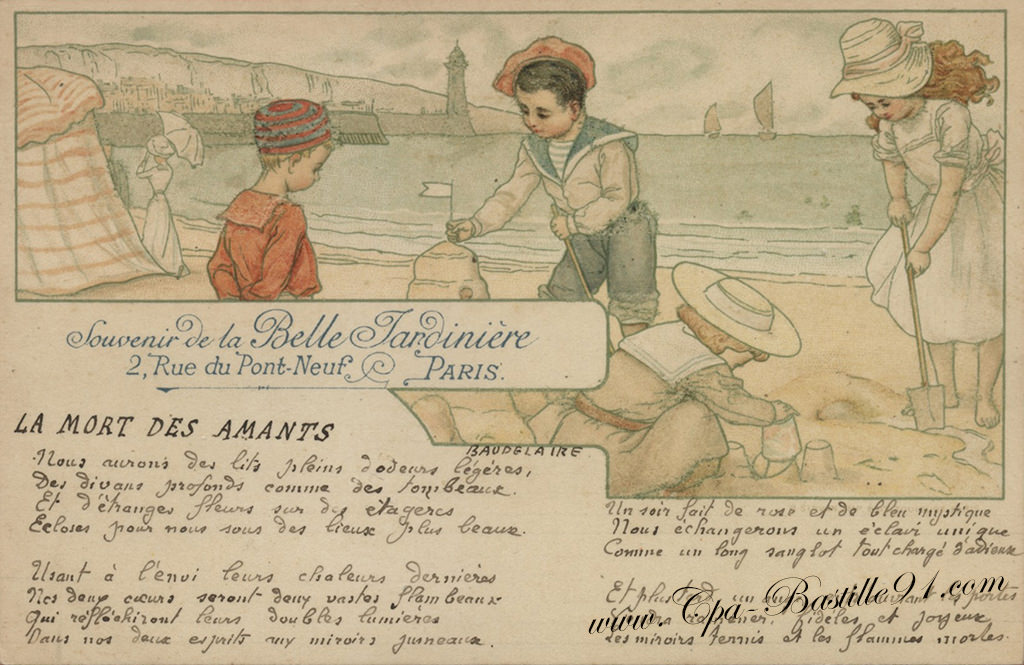 Souvenir de la Belle Jardinière
2, Rue du Pont-Neuf PARIS.
LA MORT DES AMANTS
BAUDELAIRE.
Nous aurons des lits pleins d'odeurs légères,
Des divans profonds comme des tombeaux.
Et d'étranges fleurs sur des étageres
Ecloses pour nous sous des cieux plus beaux.
Usant à l'envi leurs chaleurs dernières
Nos deux cœurs seront deux vastes flambeaux
Qui réfléchiront leurs doubles lumières
Dans nos deux esprits aux miroirs jumeaux.
Un soir fait de rose et de bleu mystique
Nous échangerons un éclair unique
Comme un long sanglot tout chargé d'adieux
Et plus un portes
Viendra fidèles et joyeux
Les miroirs ternis et les flammes mortes.
www.Cpa-Bastille91.com